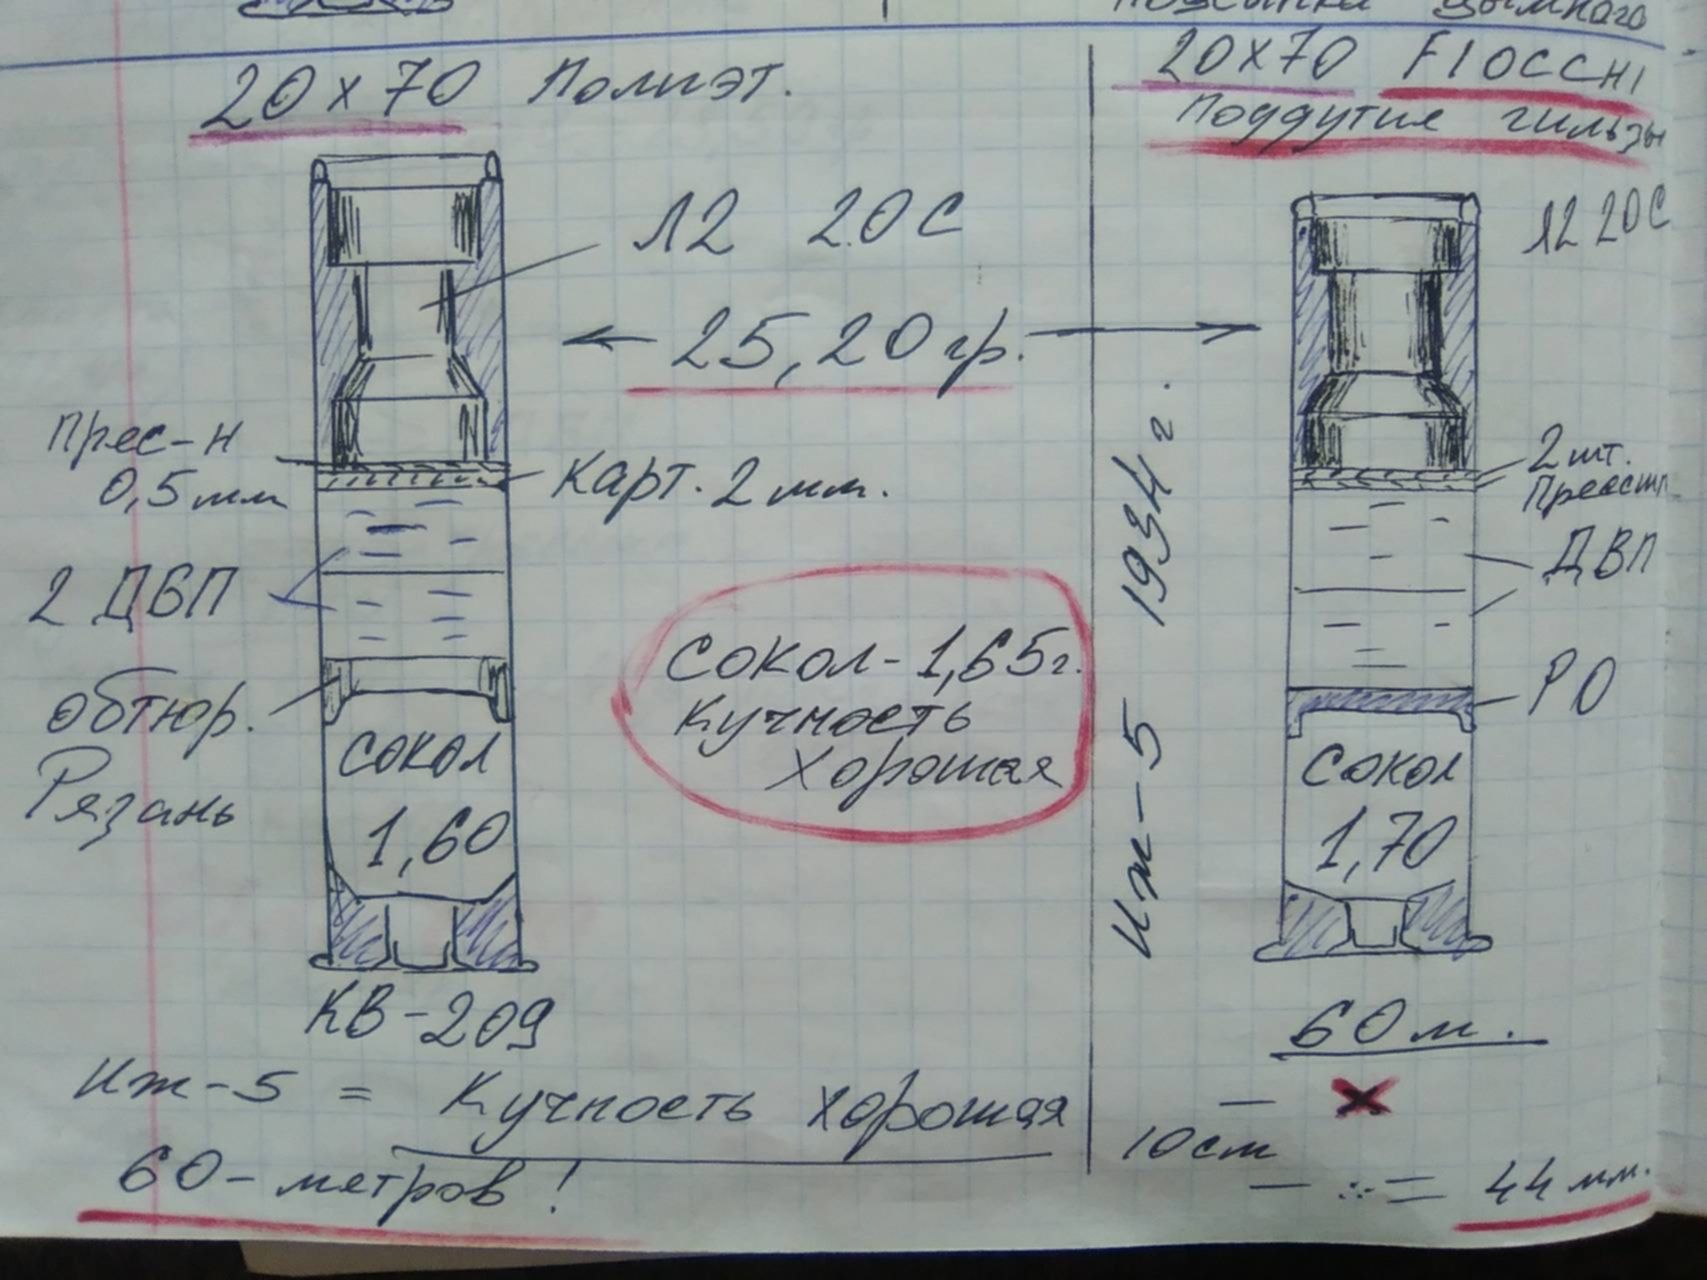 Подсыпка дымного
20 х 70 Полиэт.
Л2 20С
25,20 гр.
Прес-н
0,5 мм
Карт. 2 мм.
2 ДВП
обтюр.
Рязань
Сокол
1,60
Сокол - 1,65 г.
Кучность
Хорошая
КВ-209
Иж-5 = Кучность хорошая
60-метров!
Иж-5 1934 г.
20х70 FIOCCHI
Поддутие гильзы
Л2 20С
2 шт.
ДВП
РО
Сокол
1,70
60 м.
10 см
44 мм.